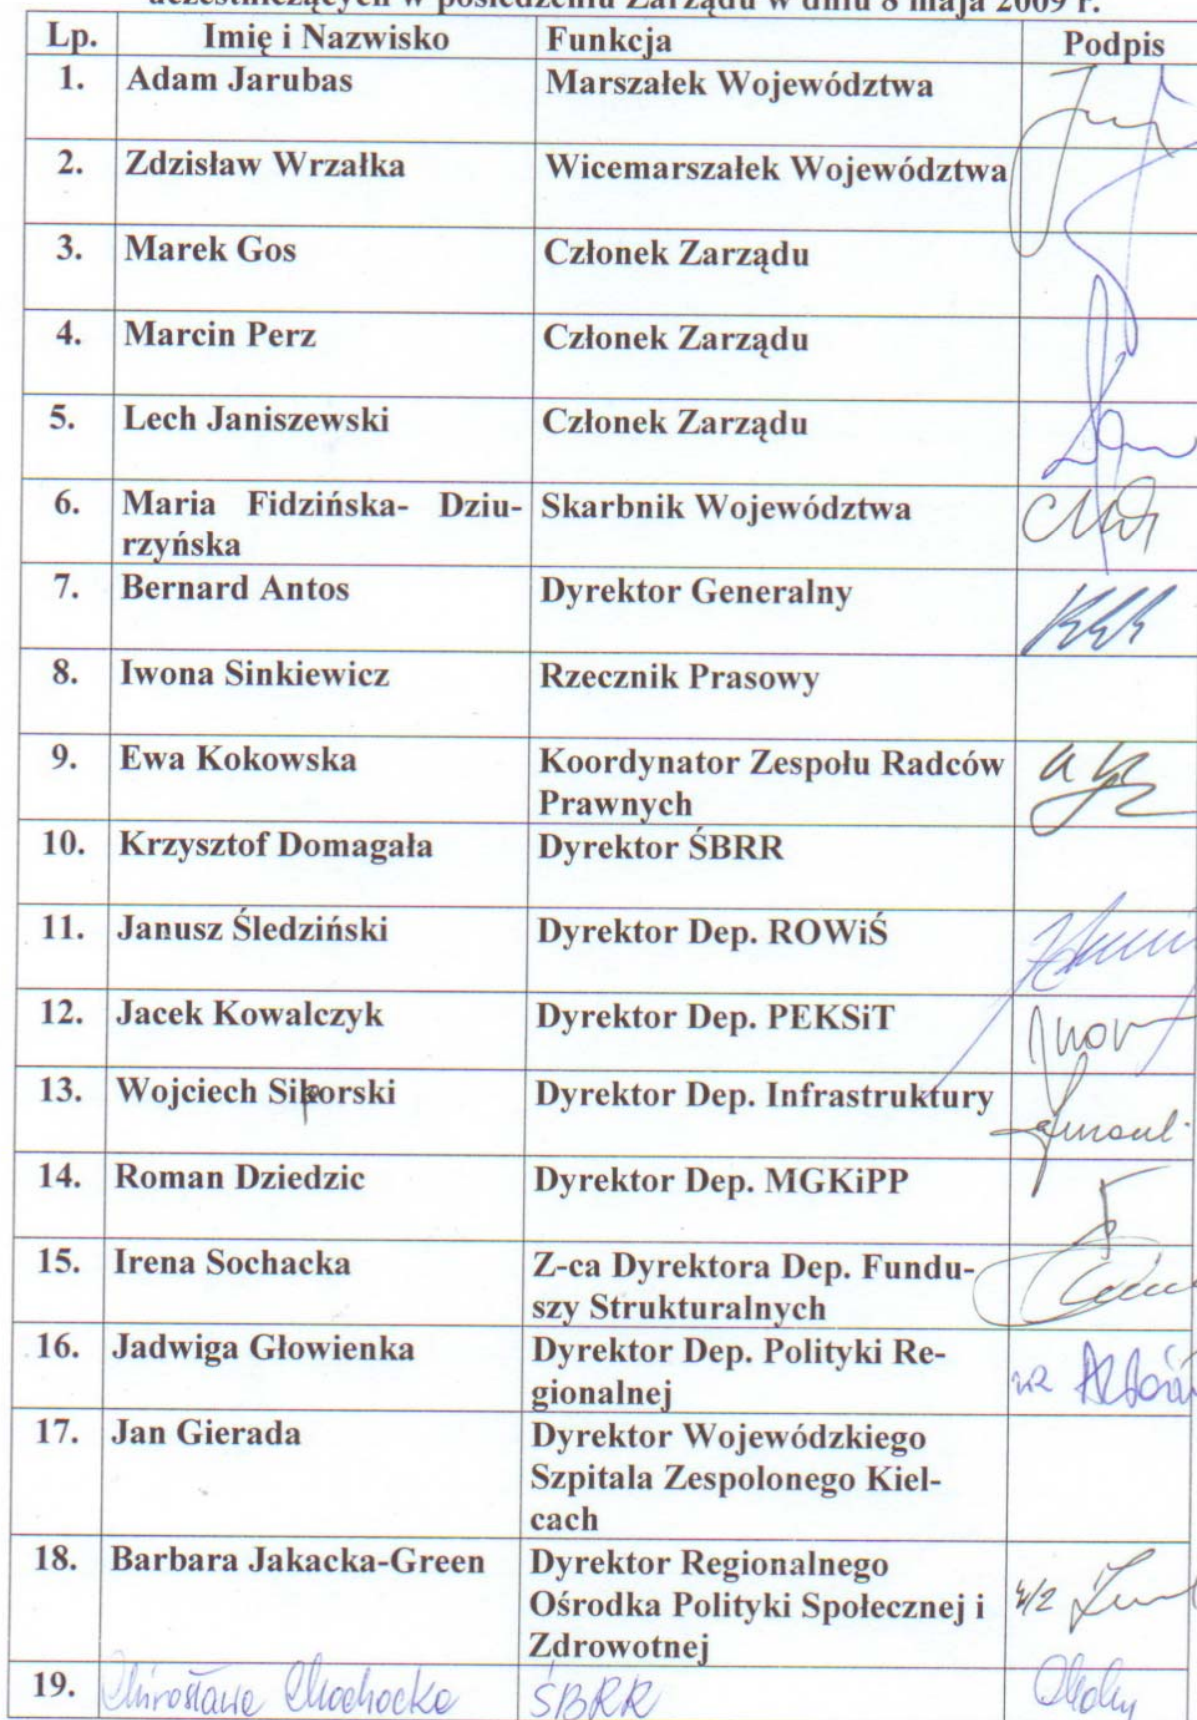 uczestniczących w posiedzeniu Zarządu w dniu 8 maja 2009 r.
Lp. Imię i Nazwisko Funkcja Podpis
1. Adam Jarubas Marszałek Województwa
2. Zdzisław Wrzałka Wicemarszałek Województwa
3. Marek Gos Członek Zarządu
4. Marcin Perz Członek Zarządu
5. Lech Janiszewski Członek Zarządu
6. Maria Fidzińska- Dziu- Skarbnik Województwa
rzyńska
7. Bernard Antos Dyrektor Generalny
8. Iwona Sinkiewicz Rzecznik Prasowy
9. Ewa Kokowska Koordynator Zespołu Radców
Prawnych
10. Krzysztof Domagała Dyrektor ŚBRR
11. Janusz Śledziński Dyrektor Dep. ROWiŚ
12. Jacek Kowalczyk Dyrektor Dep. PEKSiT
13. Wojciech Siporski Dyrektor Dep. Infrastruktury
14. Roman Dziedzic Dyrektor Dep. MGKiPP
15. Irena Sochacka Z-ca Dyrektora Dep. Fundu-
szy Strukturalnych
16. Jadwiga Głowienka Dyrektor Dep. Polityki Re-
gionalnej
17. Jan Gierada Dyrektor Wojewódzkiego
Szpitala Zespolonego Kiel-
cach
18. Barbara Jakacka-Green Dyrektor Regionalnego
Ośrodka Polityki Społecznej i
Zdrowotnej
19. Mirosława Mochocka ŚBRR